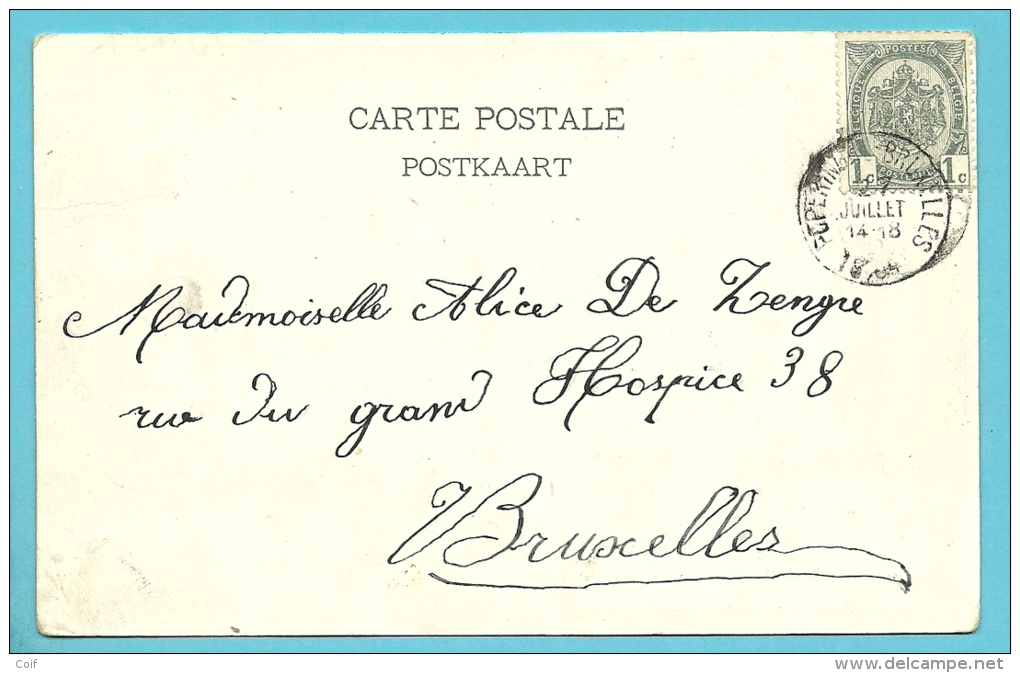 CARTE POSTALE
POSTKAART
POSTES
BELGIQUE BELGIE
1c 1c
BRUXELLES
JUILLET
14-18
Mademoiselle Alice De Zengre
rue du grand Hospice 38
Bruxelles
Coif
delcampe.net